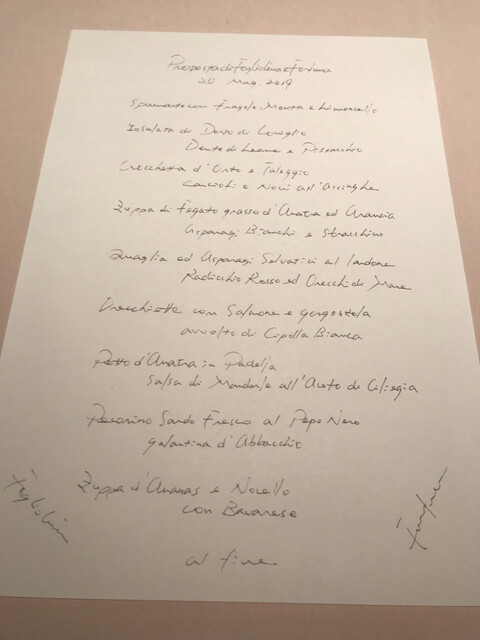 Proposta di Fogliolina e Furfuur
20 Mag. 2019
Spumante con Fragole Menta e Limoncello
Insalata di Dorso di Coniglio
Dente di Leone e Pistacchio
Crocchetta d'Orto e Taleggio
e Noci all'Acciughe
Zuppa di Fegato grasso d'Anatra ed Arancia
Asparagi Bianchi e Stracchino
Quaglia ed Asparagi Selvatici al Lardone
Radicchio Rosso ed Orecchi di Mare
Orecchiette con Salmone e gorgonzola
avvolto di Cipolla Bianca
Petto d'Anatra in Padella
Salsa di Mandorle all'Aceto di Ciliegia
Pecorino Sardo Fresco al Pepe Nero
galantina d'Abbacchio
Zuppa d'Ananas e Novello
con Bavarese
al fine